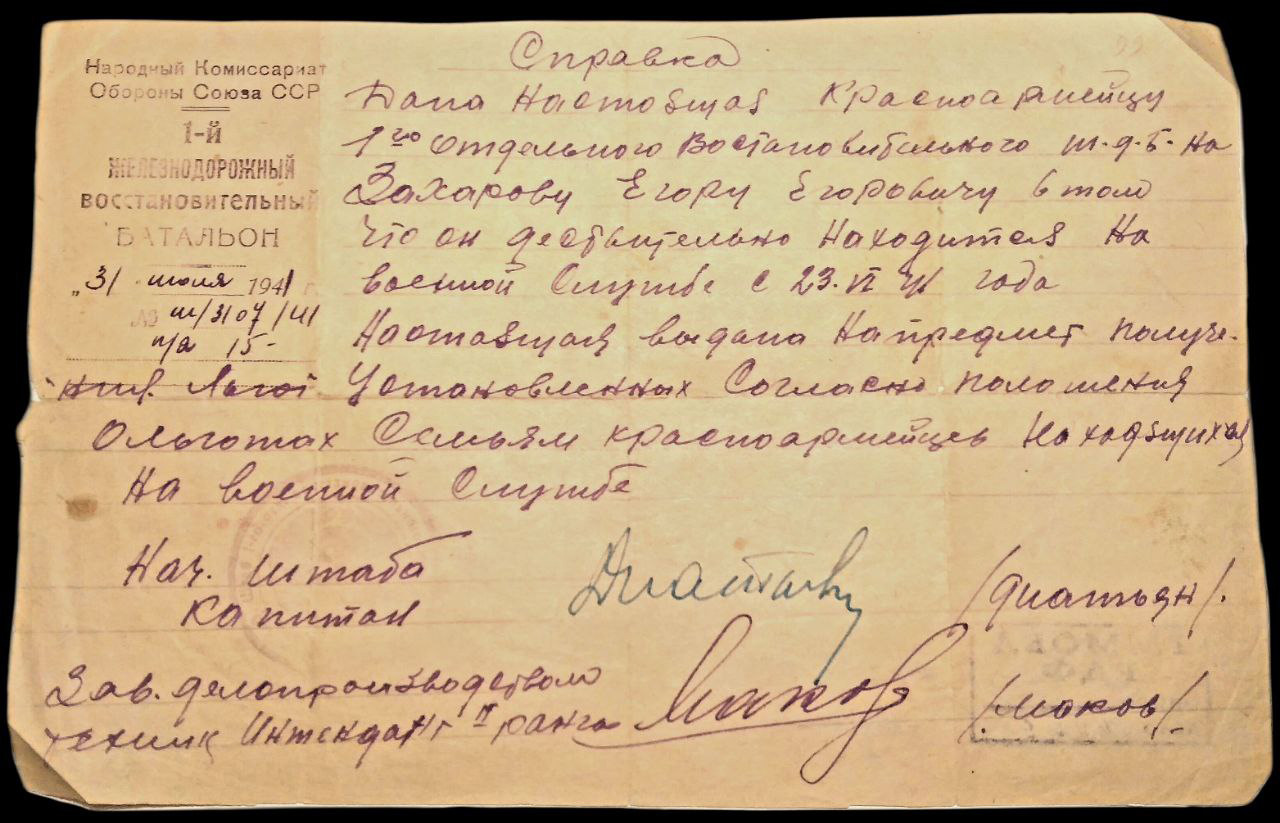 Справка
Народный Комиссариат
Обороны Союза ССР
1-й
ЖЕЛЕЗНОДОРОЖНЫЙ
ВОССТАНОВИТЕЛЬНЫЙ
БАТАЛЬОН
„31 июля 1941 г.
№ ш/3107/41
п/я 15-
Дана Настоящая Красноармейцу
1го Отдельного Востановительного ж.д.б. на
Захарову Егору Егоровичу в том
что он действительно Находится На
военной Службе с 23.VI 41 года
Настоящая выдана На предмет получе-
ния Льгот Установленных Согласно положения
О льготах Семьям красноармейцев Находящихся
На военной Службе
Нач. Штаба
Капитан
Зав. делопроизводством
техник Интендант II ранга
/Маков/